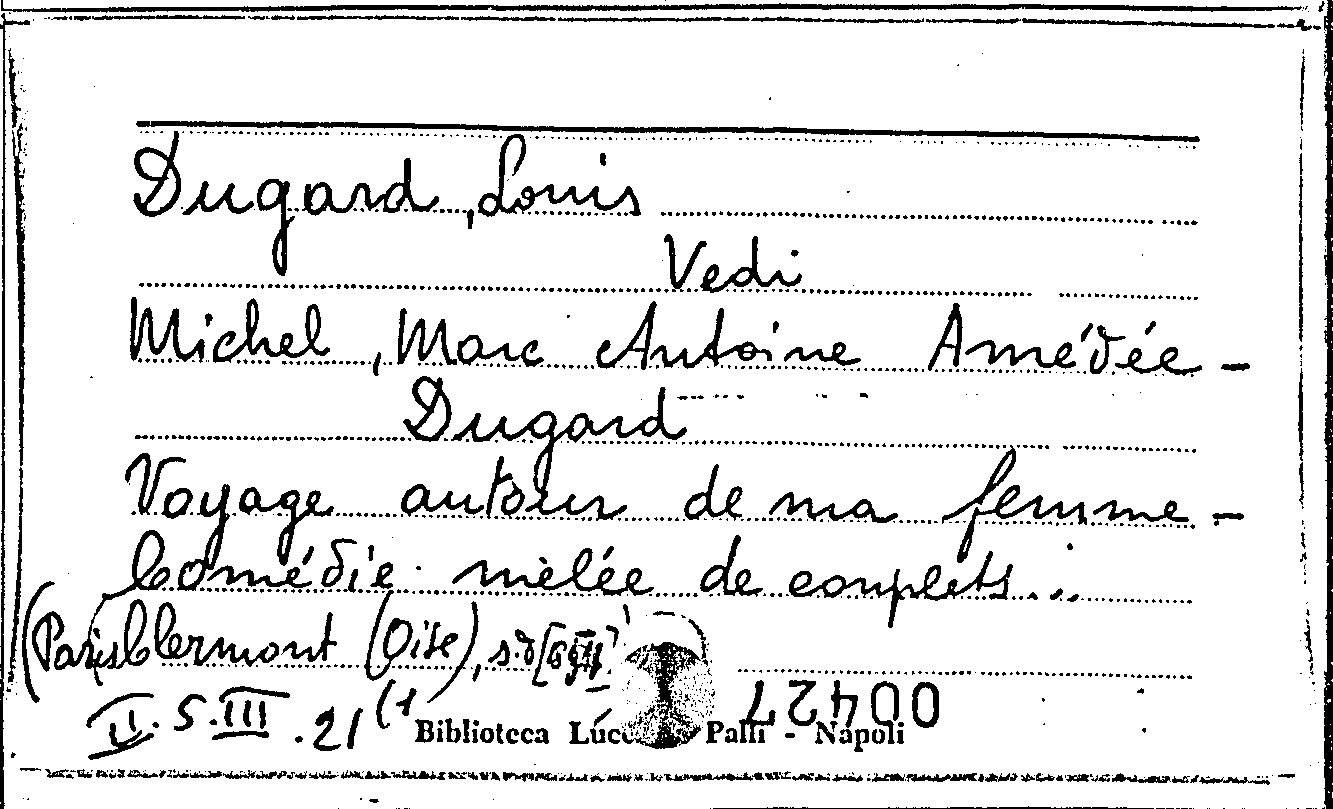 Dugard, Louis
Vedi
Michel, Marc Antoine Amédée -
Dugard
Voyage autour de ma femme -
Comédie mèlée de couplets...
(Paris) Clermont (Oise), s.d
II. 5. III. 21 (1
00427
Biblioteca Palli - Napoli